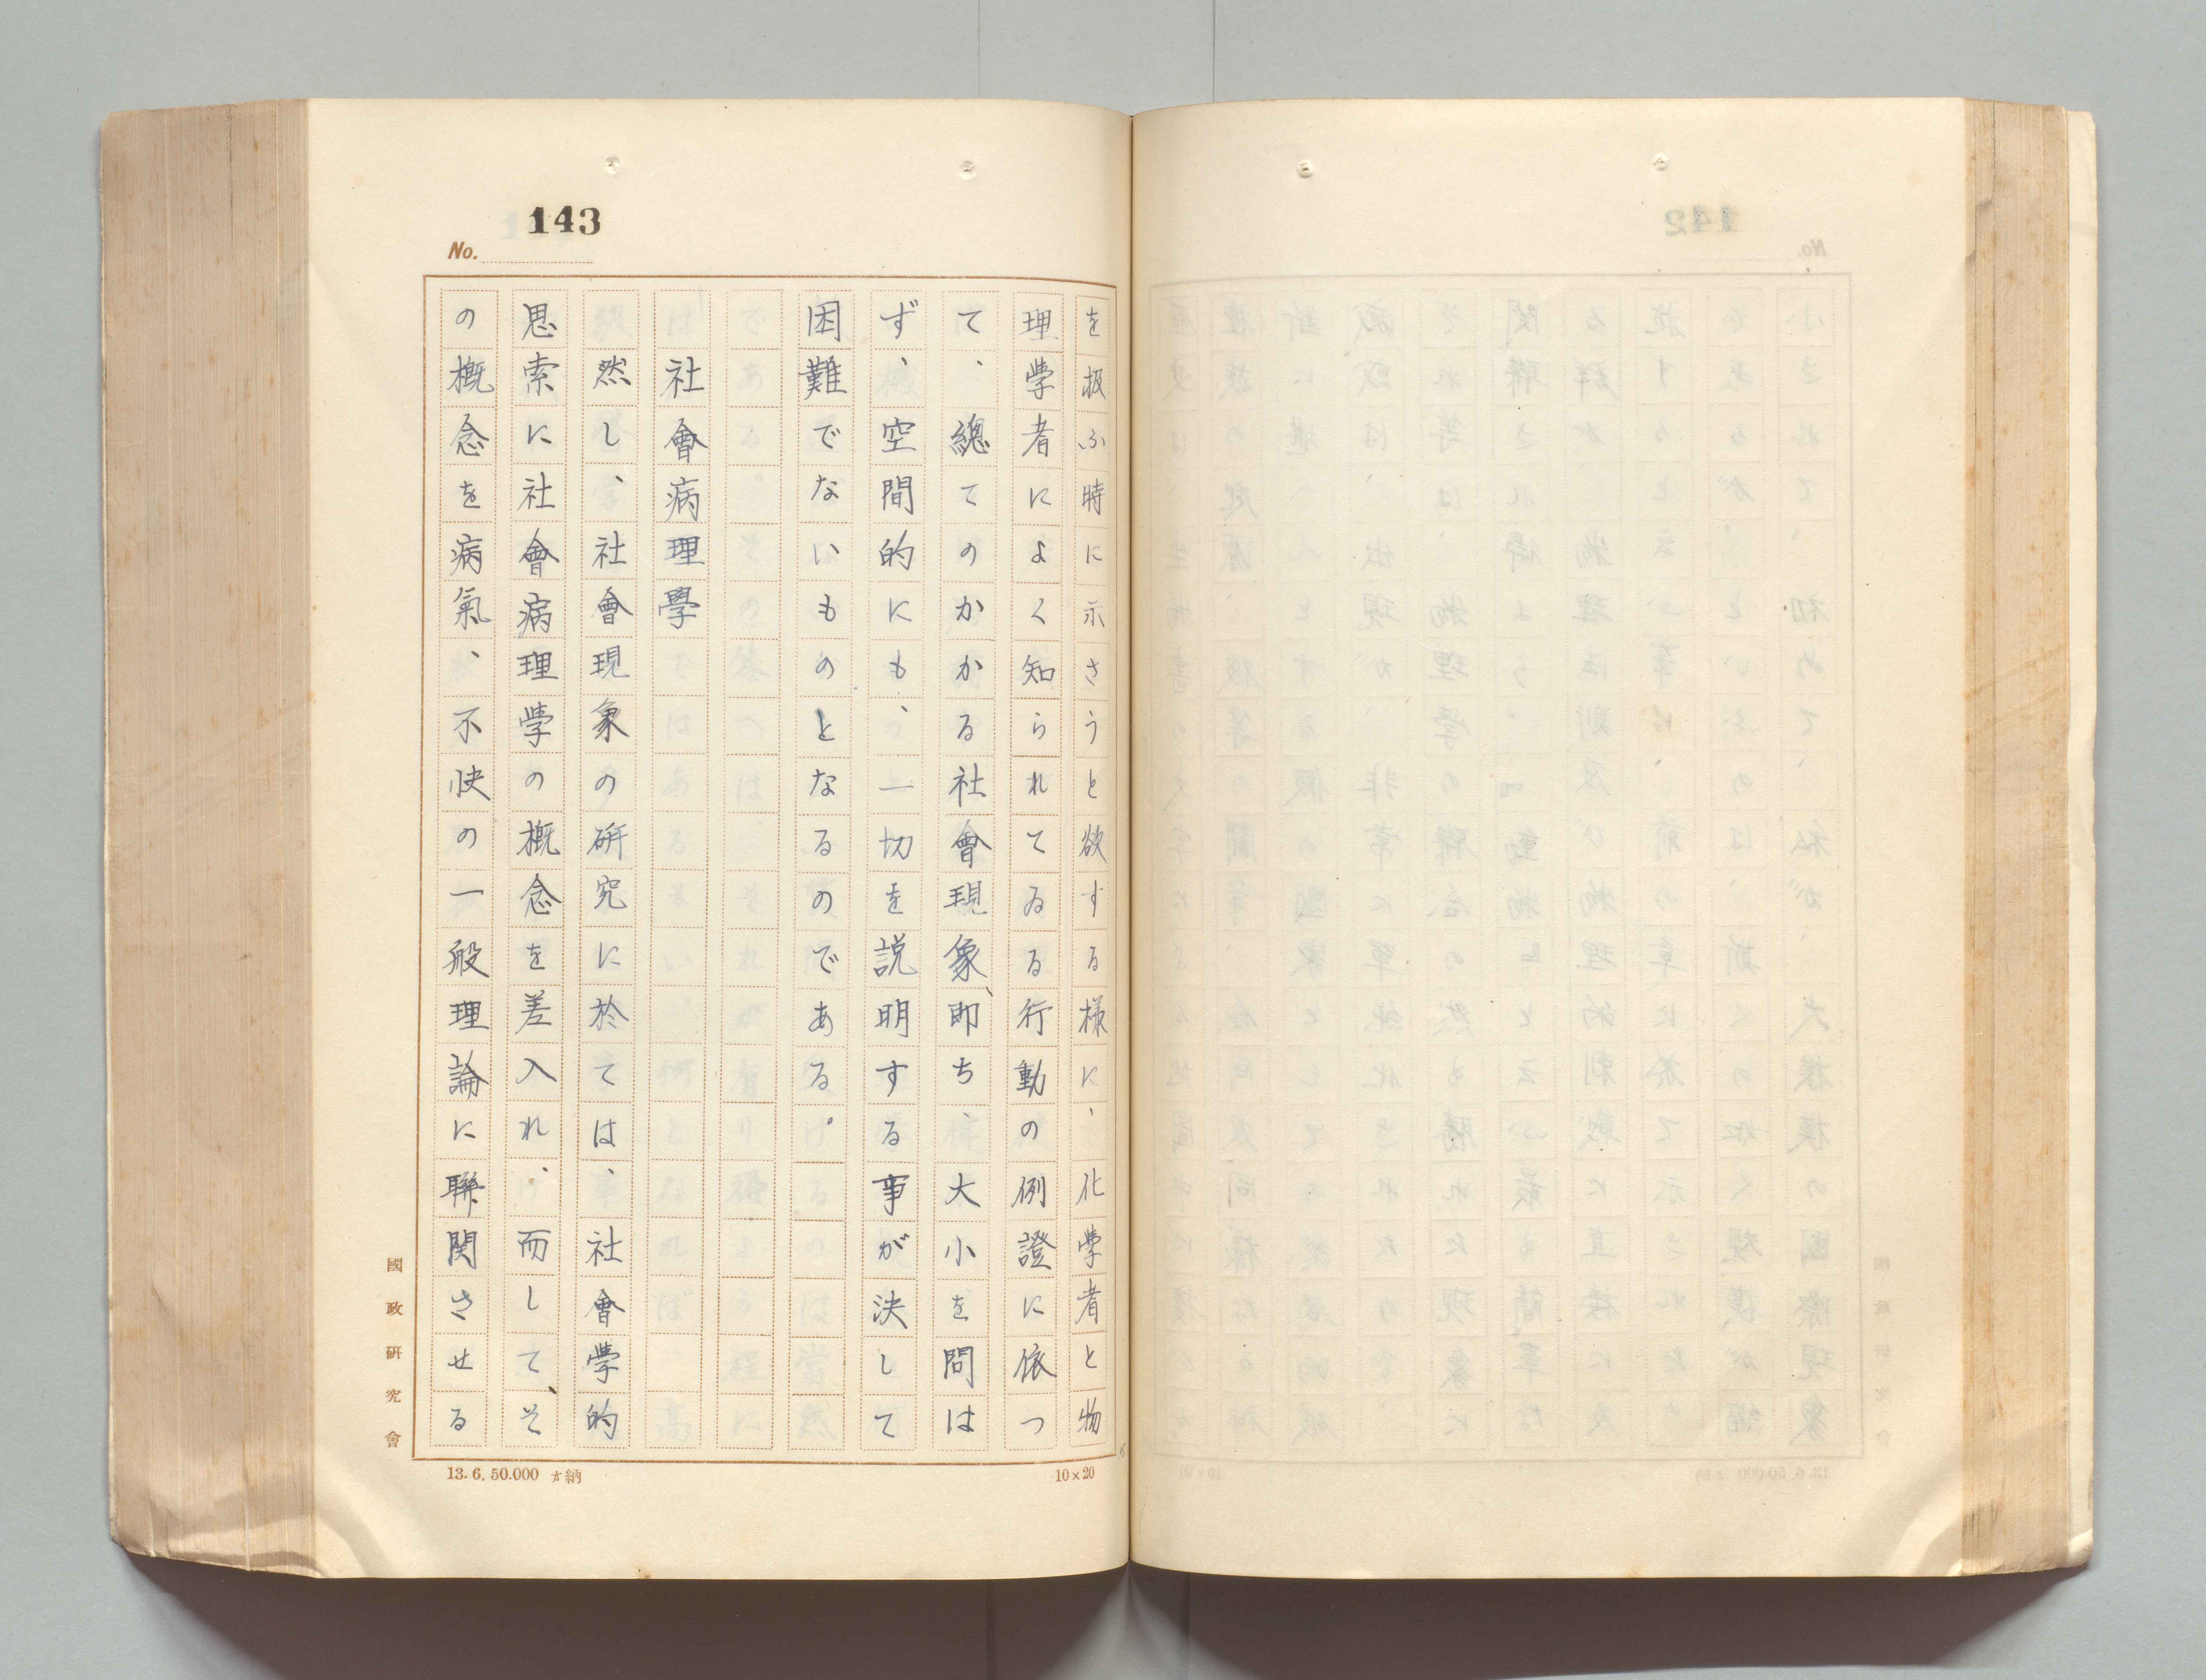 143
No.
を扱ふ時に示さうと欲する様に、化学者と物
理学者によく知られてゐる行動の例證に依つ
て、總てのかかる社會現象、即ち、大小を問は
ず、空間的にも、一切を説明する事が決して
困難でないものとなるのである。
社會病理學
然し、社會現象の研究に於ては、社會學的
思索に社會病理学の概念を差入れ、而して、そ
の概念を病氣、不快の一般理論に聯関させる
國政研究會
13.6.50.000 納
10×20